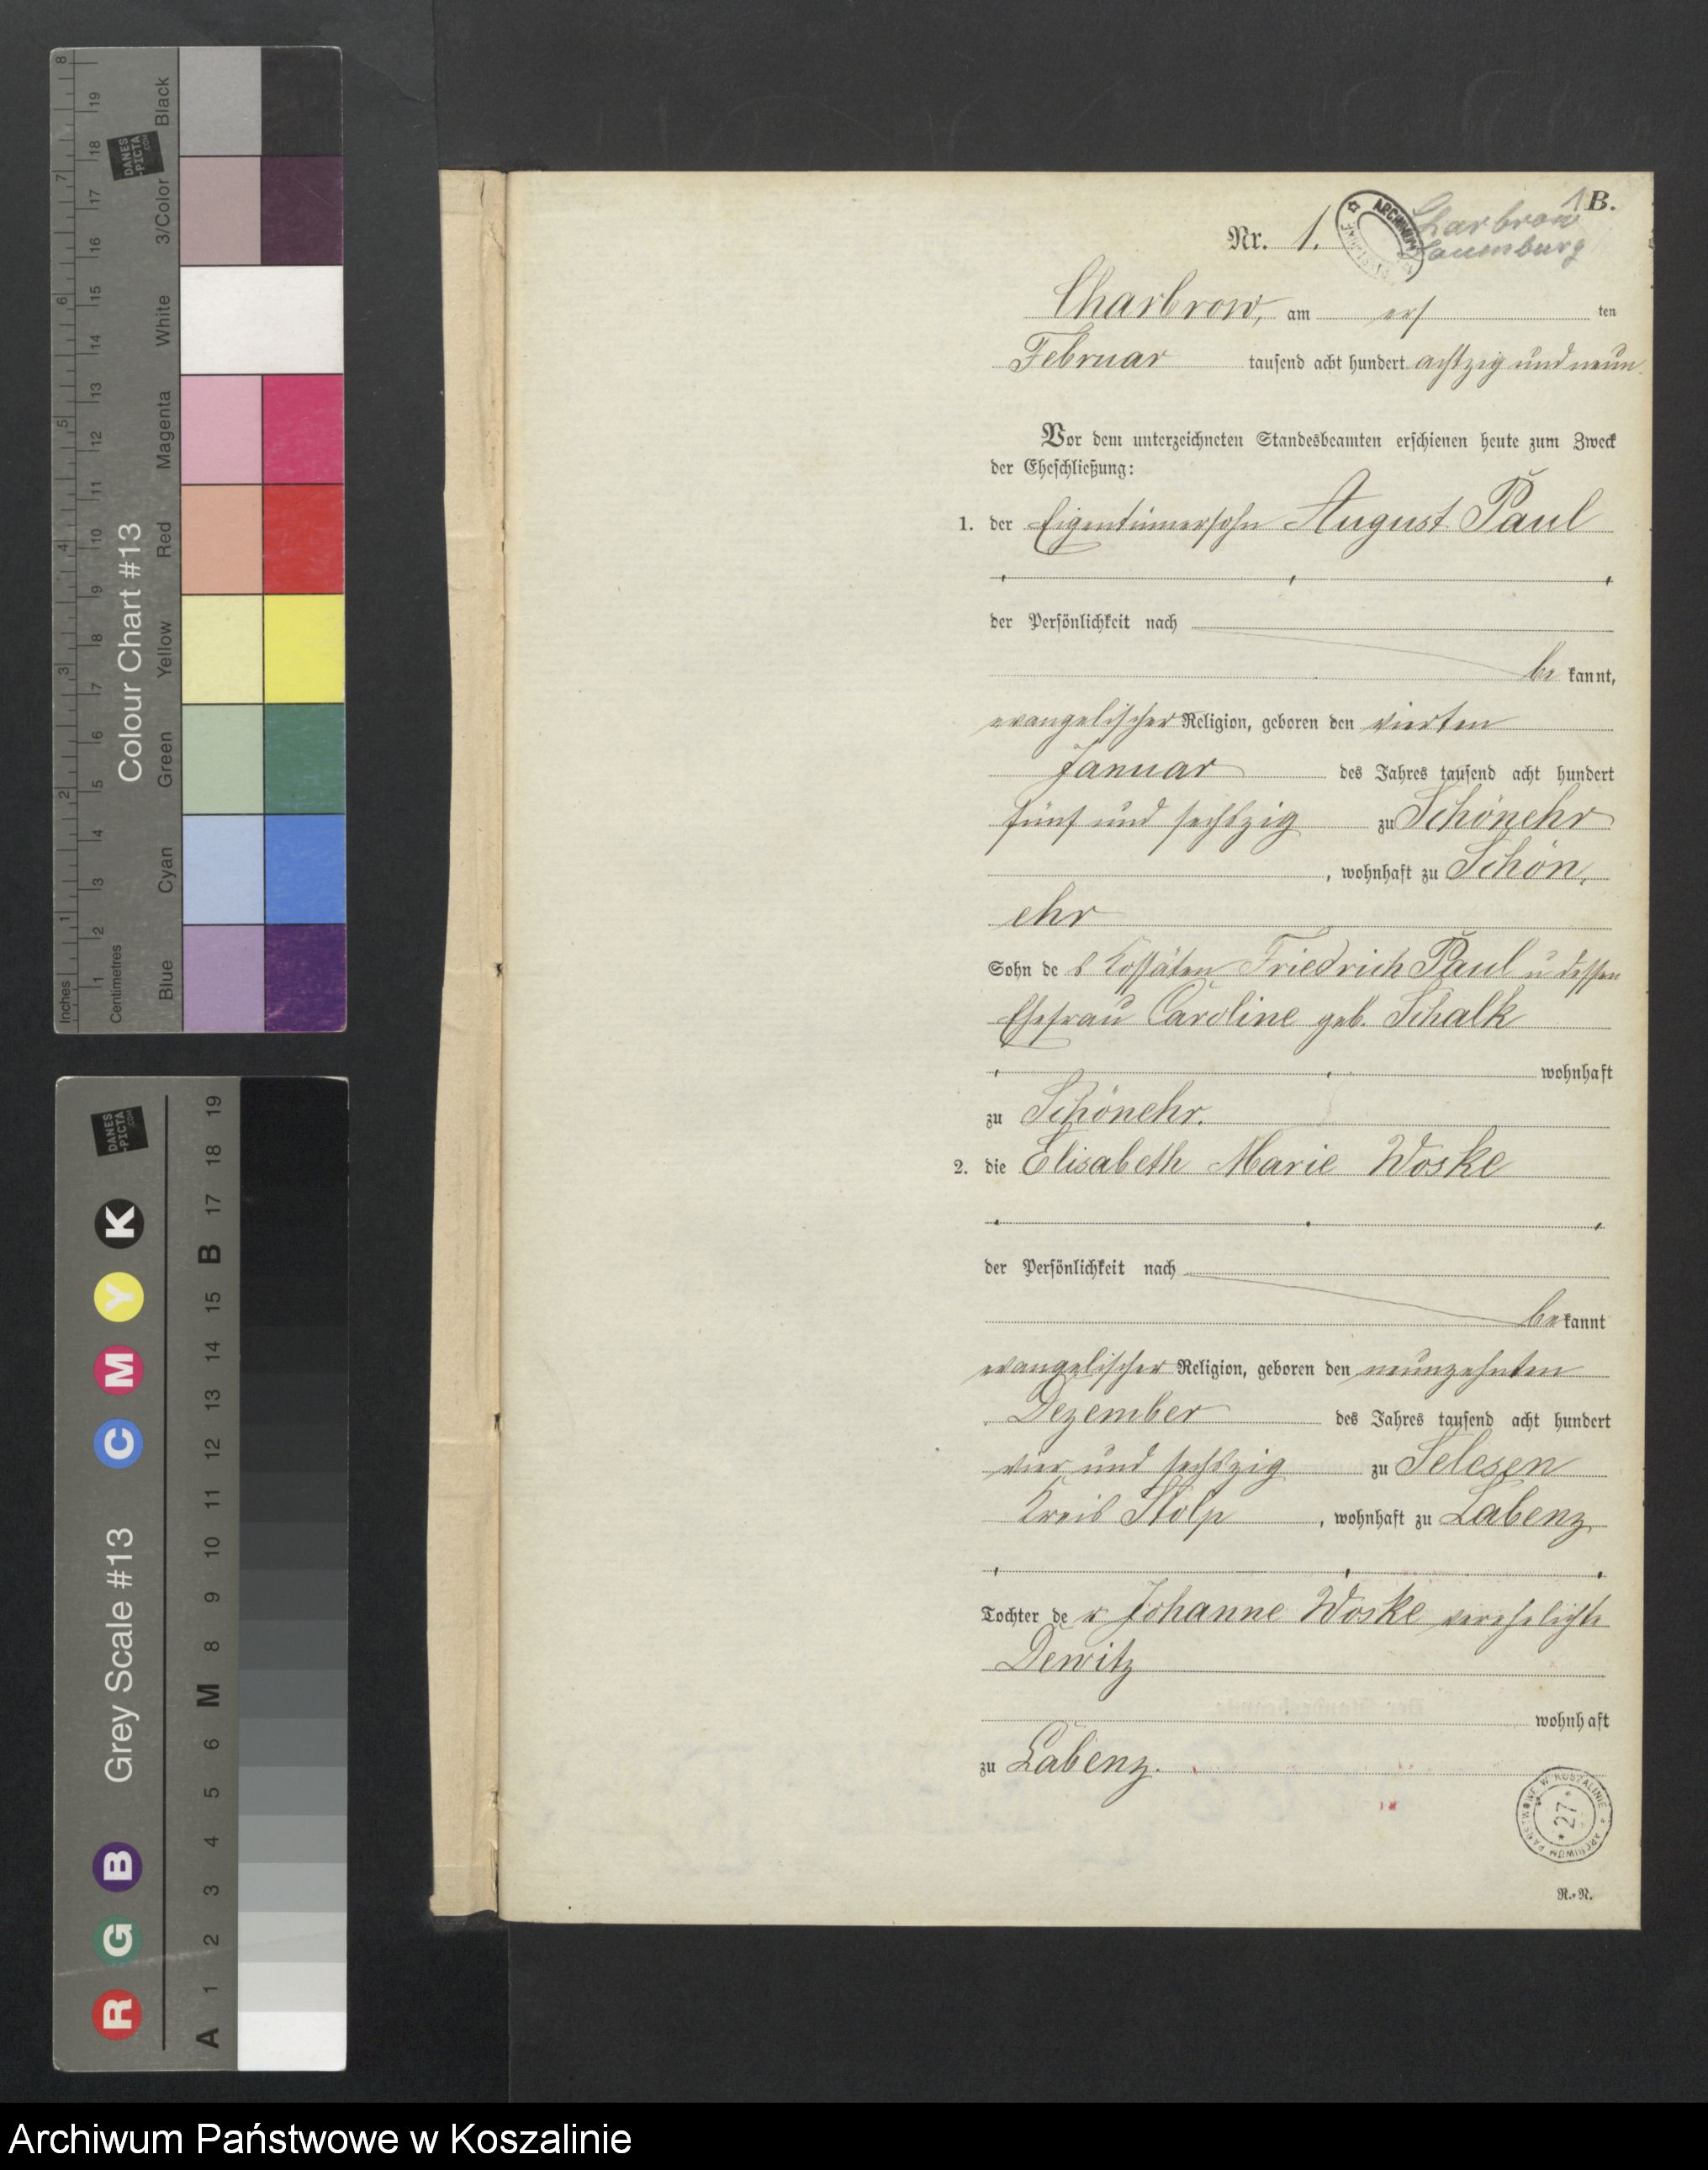 B.
1
Nr. 1.
Charbrow
Lauenburg
ARCHIWUM
Charbrow, am ers ten
Februar tausend acht hundert achtzig und neun.
Vor dem unterzeichneten Standesbeamten erschienen heute zum Zweck
der Eheschließung:
1. der Eigentümersohn August Paul
der Persönlichkeit nach
be kannt,
evangelischer Religion, geboren den vierten
Januar des Jahres tausend acht hundert
fünf und sechszig zu Schönehr
, wohnhaft zu Schön,
ehr
Sohn de s Kossäten Friedrich Paul u dessen
Ehefrau Caroline geb. Schalk
wohnhaft
zu Schönehr.
2. die Elisabeth Marie Woske
der Persönlichkeit nach
be kannt
evangelischer Religion, geboren den neunzehnten
Dezember des Jahres tausend acht hundert
vier und sechszig zu Selesen
Kreis Stolp, wohnhaft zu Labenz
Tochter de r Johanne Woske verehelichte
Dewitz
wohnhaft
zu Labenz.
ARCHIWUM PAŃSTWOWE W KOSZALINIE
* 27 *
R.-N.
Colour Chart #13
Inches 1 2 3 4 5 6 7 8
Centimetres 1 2 3 4 5 6 7 8 9 10 11 12 13 14 15 16 17 18 19
Blue Cyan Green Yellow Red Magenta White 3/Color Black
DANES
-PICTA
.COM
Grey Scale #13
R G B C M Y K
A 1 2 3 4 5 6 M 8 9 10 11 12 13 14 15 B 17 18 19
DANES
-PICTA
.COM
Archiwum Państwowe w Koszalinie